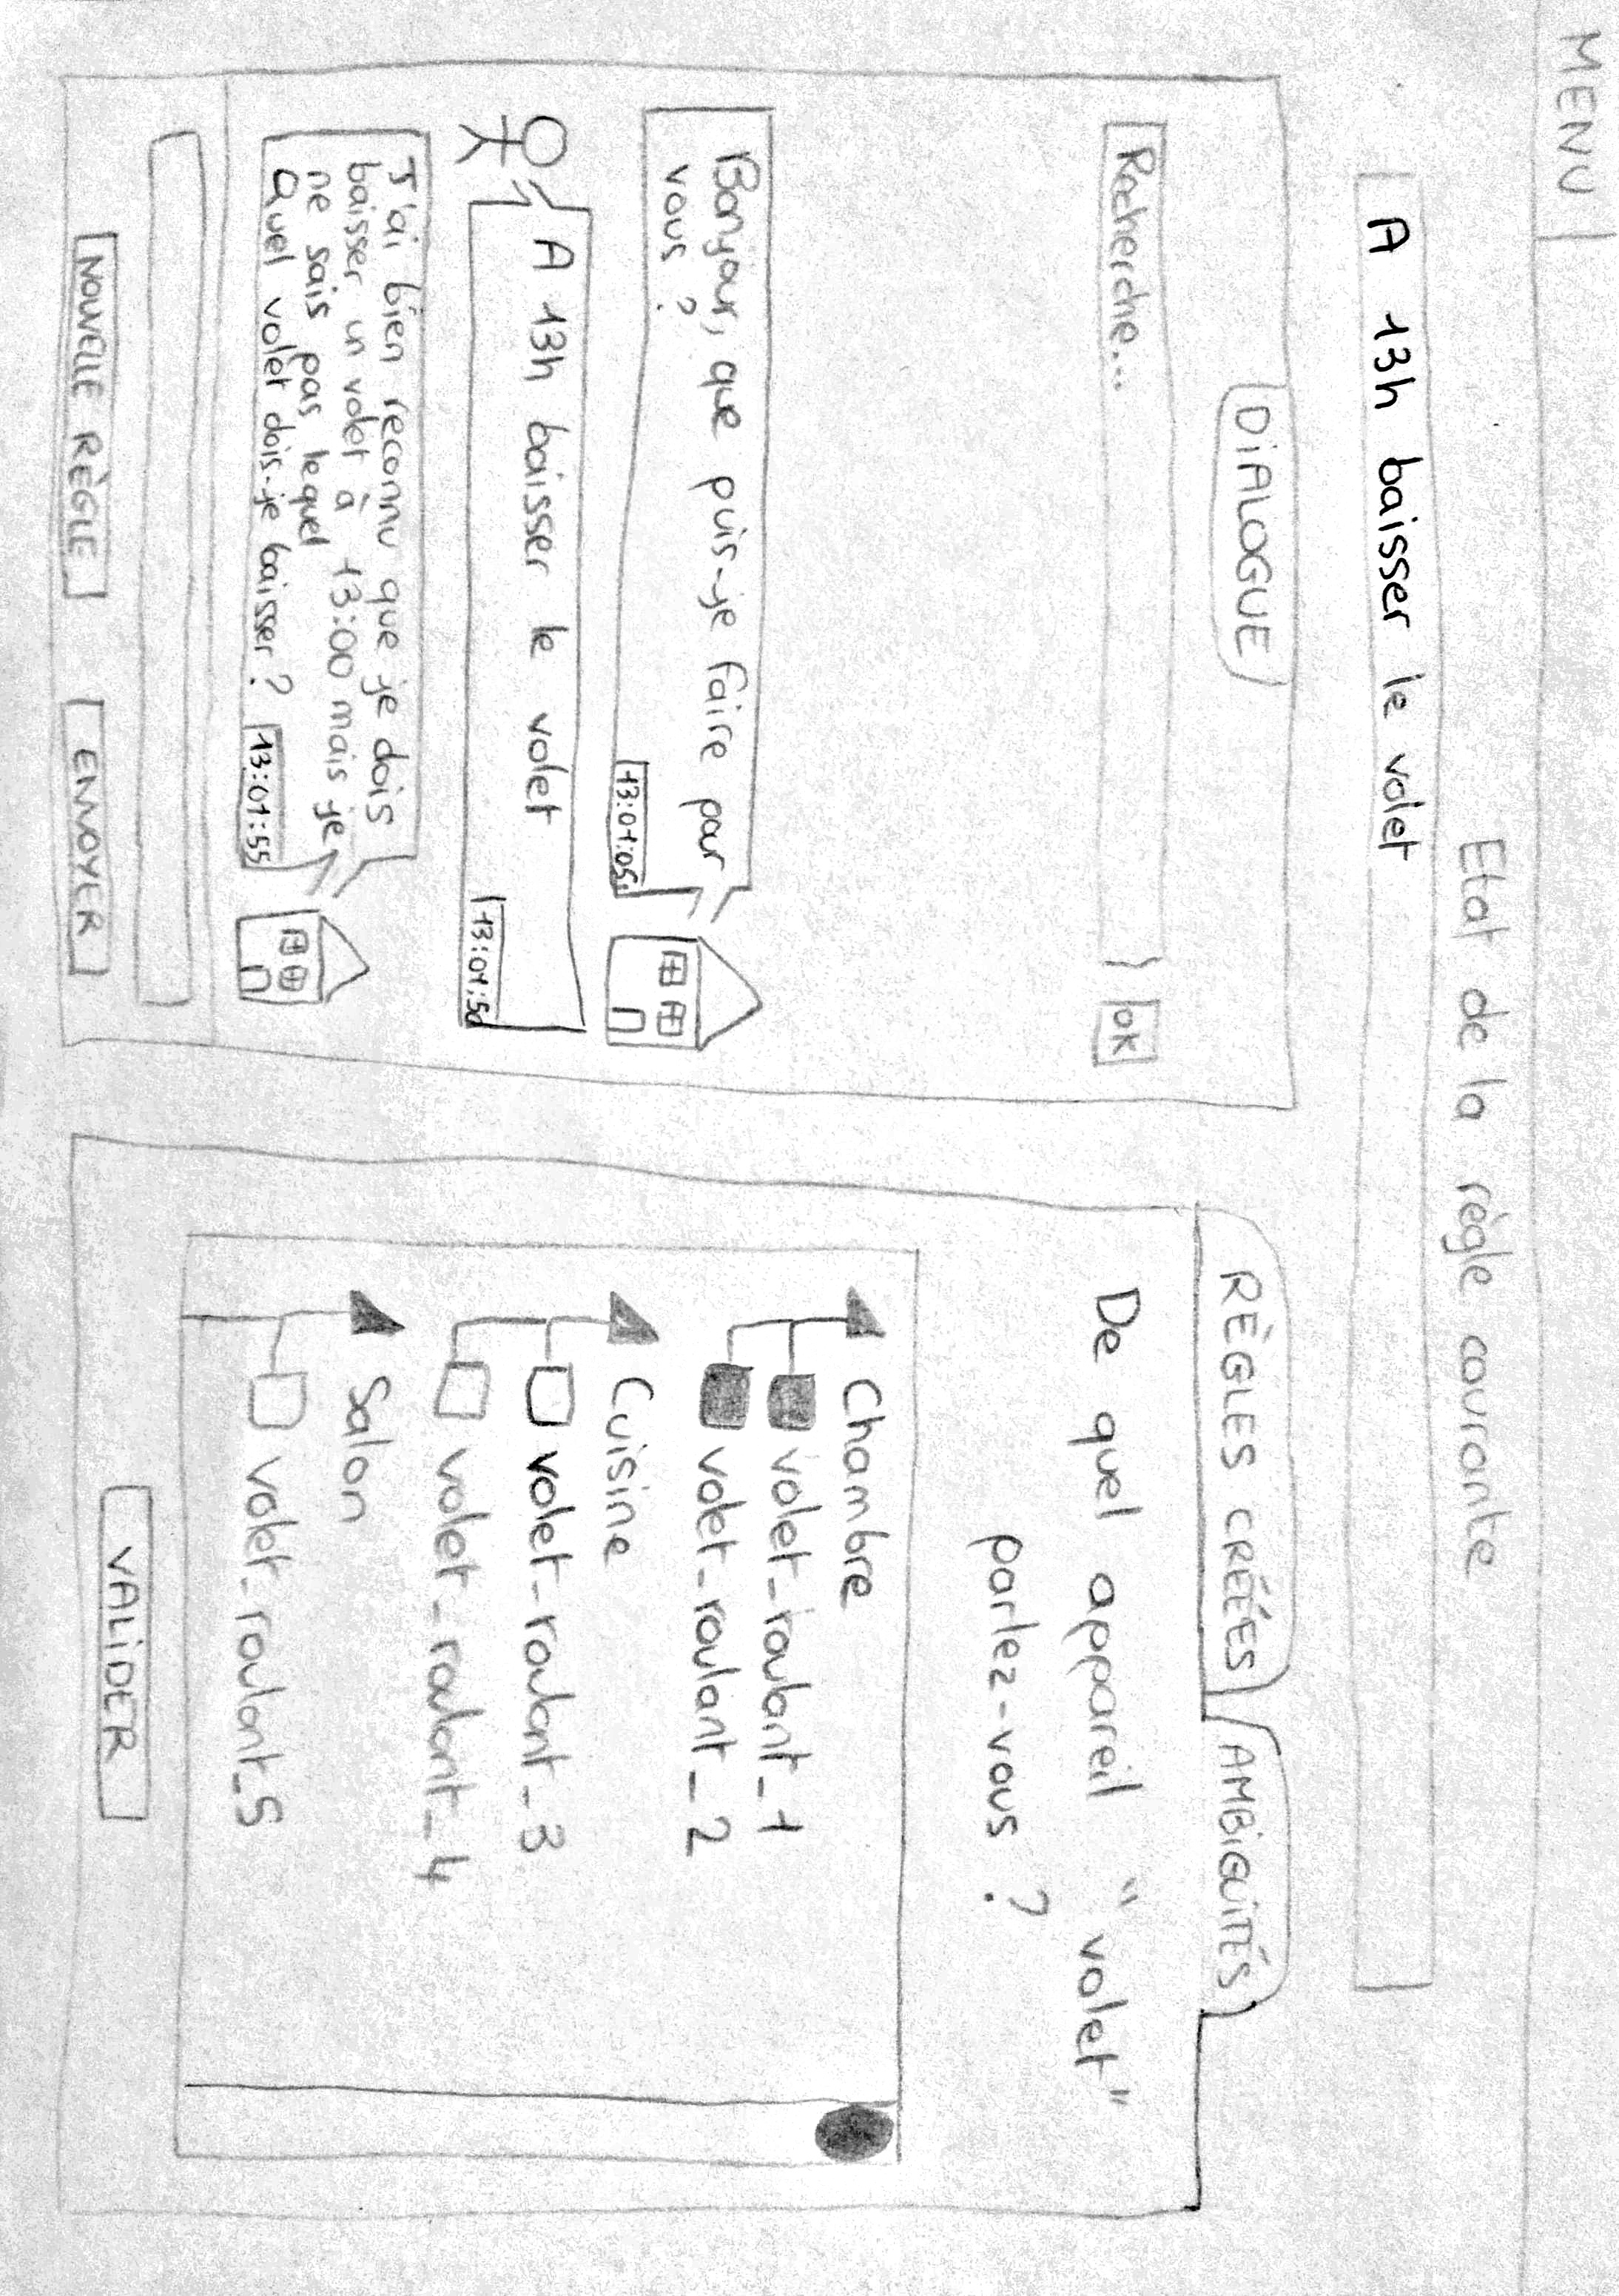 MENU
Etat de la règle courante
A 13h baisser le volet
DIALOGUE
Recherche...
OK
Bonjour, que puis-je faire pour
vous ?
13:01:05
A 13h baisser le volet
13:01:50
J'ai bien reconnu que je dois
baisser un volet à 13:00 mais je
ne sais pas lequel
Quel volet dois-je baisser ?
13:01:55
NOUVELLE RÈGLE
ENVOYER
RÈGLES CRÉÉES
AMBIGUITÉS
De quel appareil "volet"
parlez-vous ?
Chambre
volet_roulant_1
volet_roulant_2
Cuisine
volet_roulant_3
volet_roulant_4
Salon
volet_roulant_5
VALIDER